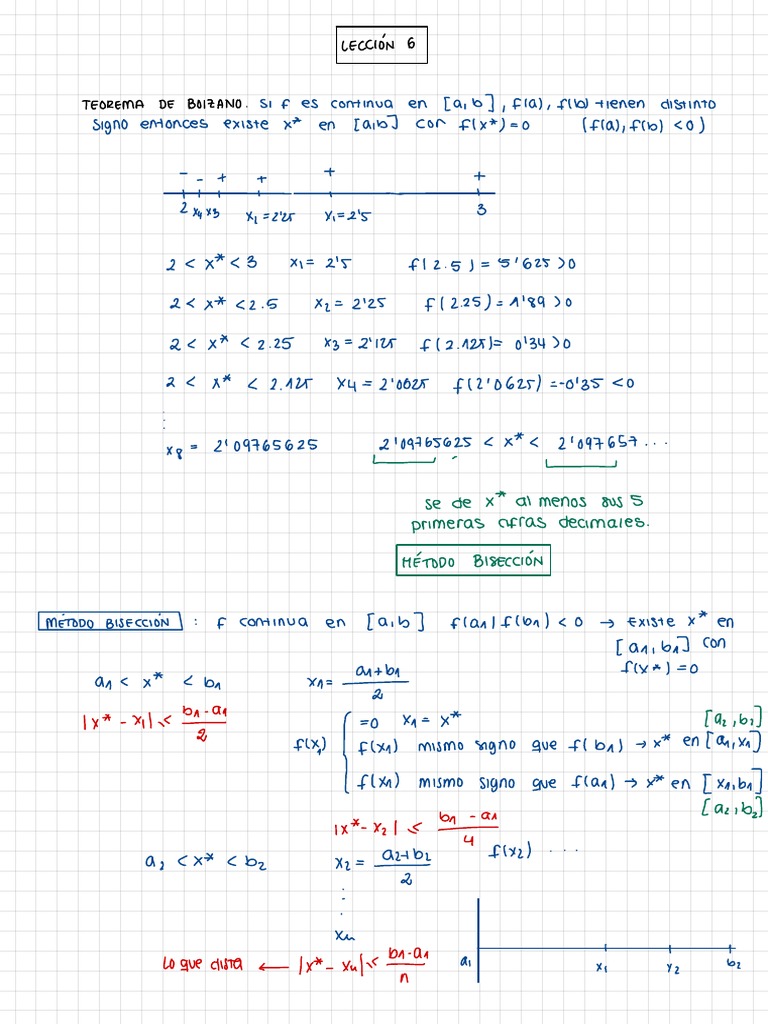 LECCIÓN 6
TEOREMA DE BOLZANO. Si f es continua en [a,b], f(a), f(b) tienen distinto
signo entonces existe x* en [a,b] con f(x*)=0 (f(a), f(b) <0)
- - + + + +
2 x4 x3 x2=2'25 x1=2'5 3
2 < x* < 3 x1= 2'5 f(2.5) = 5'625 >0
2 < x* < 2.5 x2 = 2'25 f(2.25) = 1'89 >0
2 < x* < 2.25 x3 = 2'125 f(2.125)= 0'34 >0
2 < x* < 2.125 x4 = 2'0625 f(2'0625) =-0'35 <0
⋮
x8 = 2'09765625 2'09765625 < x* < 2'097657...
se de x* al menos sus 5
primeras cifras decimales.
MÉTODO BISECCIÓN
MÉTODO BISECCIÓN : f continua en [a,b] f(a1) f(b1) < 0 → Existe x* en
[a1, b1] con
f(x*) =0
a1 < x* < b1 x1= (a1+b1)/2
|x* - x1| ≤ (b1-a1)/2
=0 x1 = x* [a2, b2]
f(x1) { f(x1) mismo signo que f(b1) → x* en [a1, x1]
f(x1) mismo signo que f(a1) → x* en [x1, b1]
[a2, b2]
|x* - x2| ≤ (b1 - a1)/4
a2 < x* < b2 x2 = (a2+b2)/2 f(x2) ...
⋮
xn
Lo que dista ← |x* - xn| ≤ (b1-a1)/n
a1 x1 x2 b2